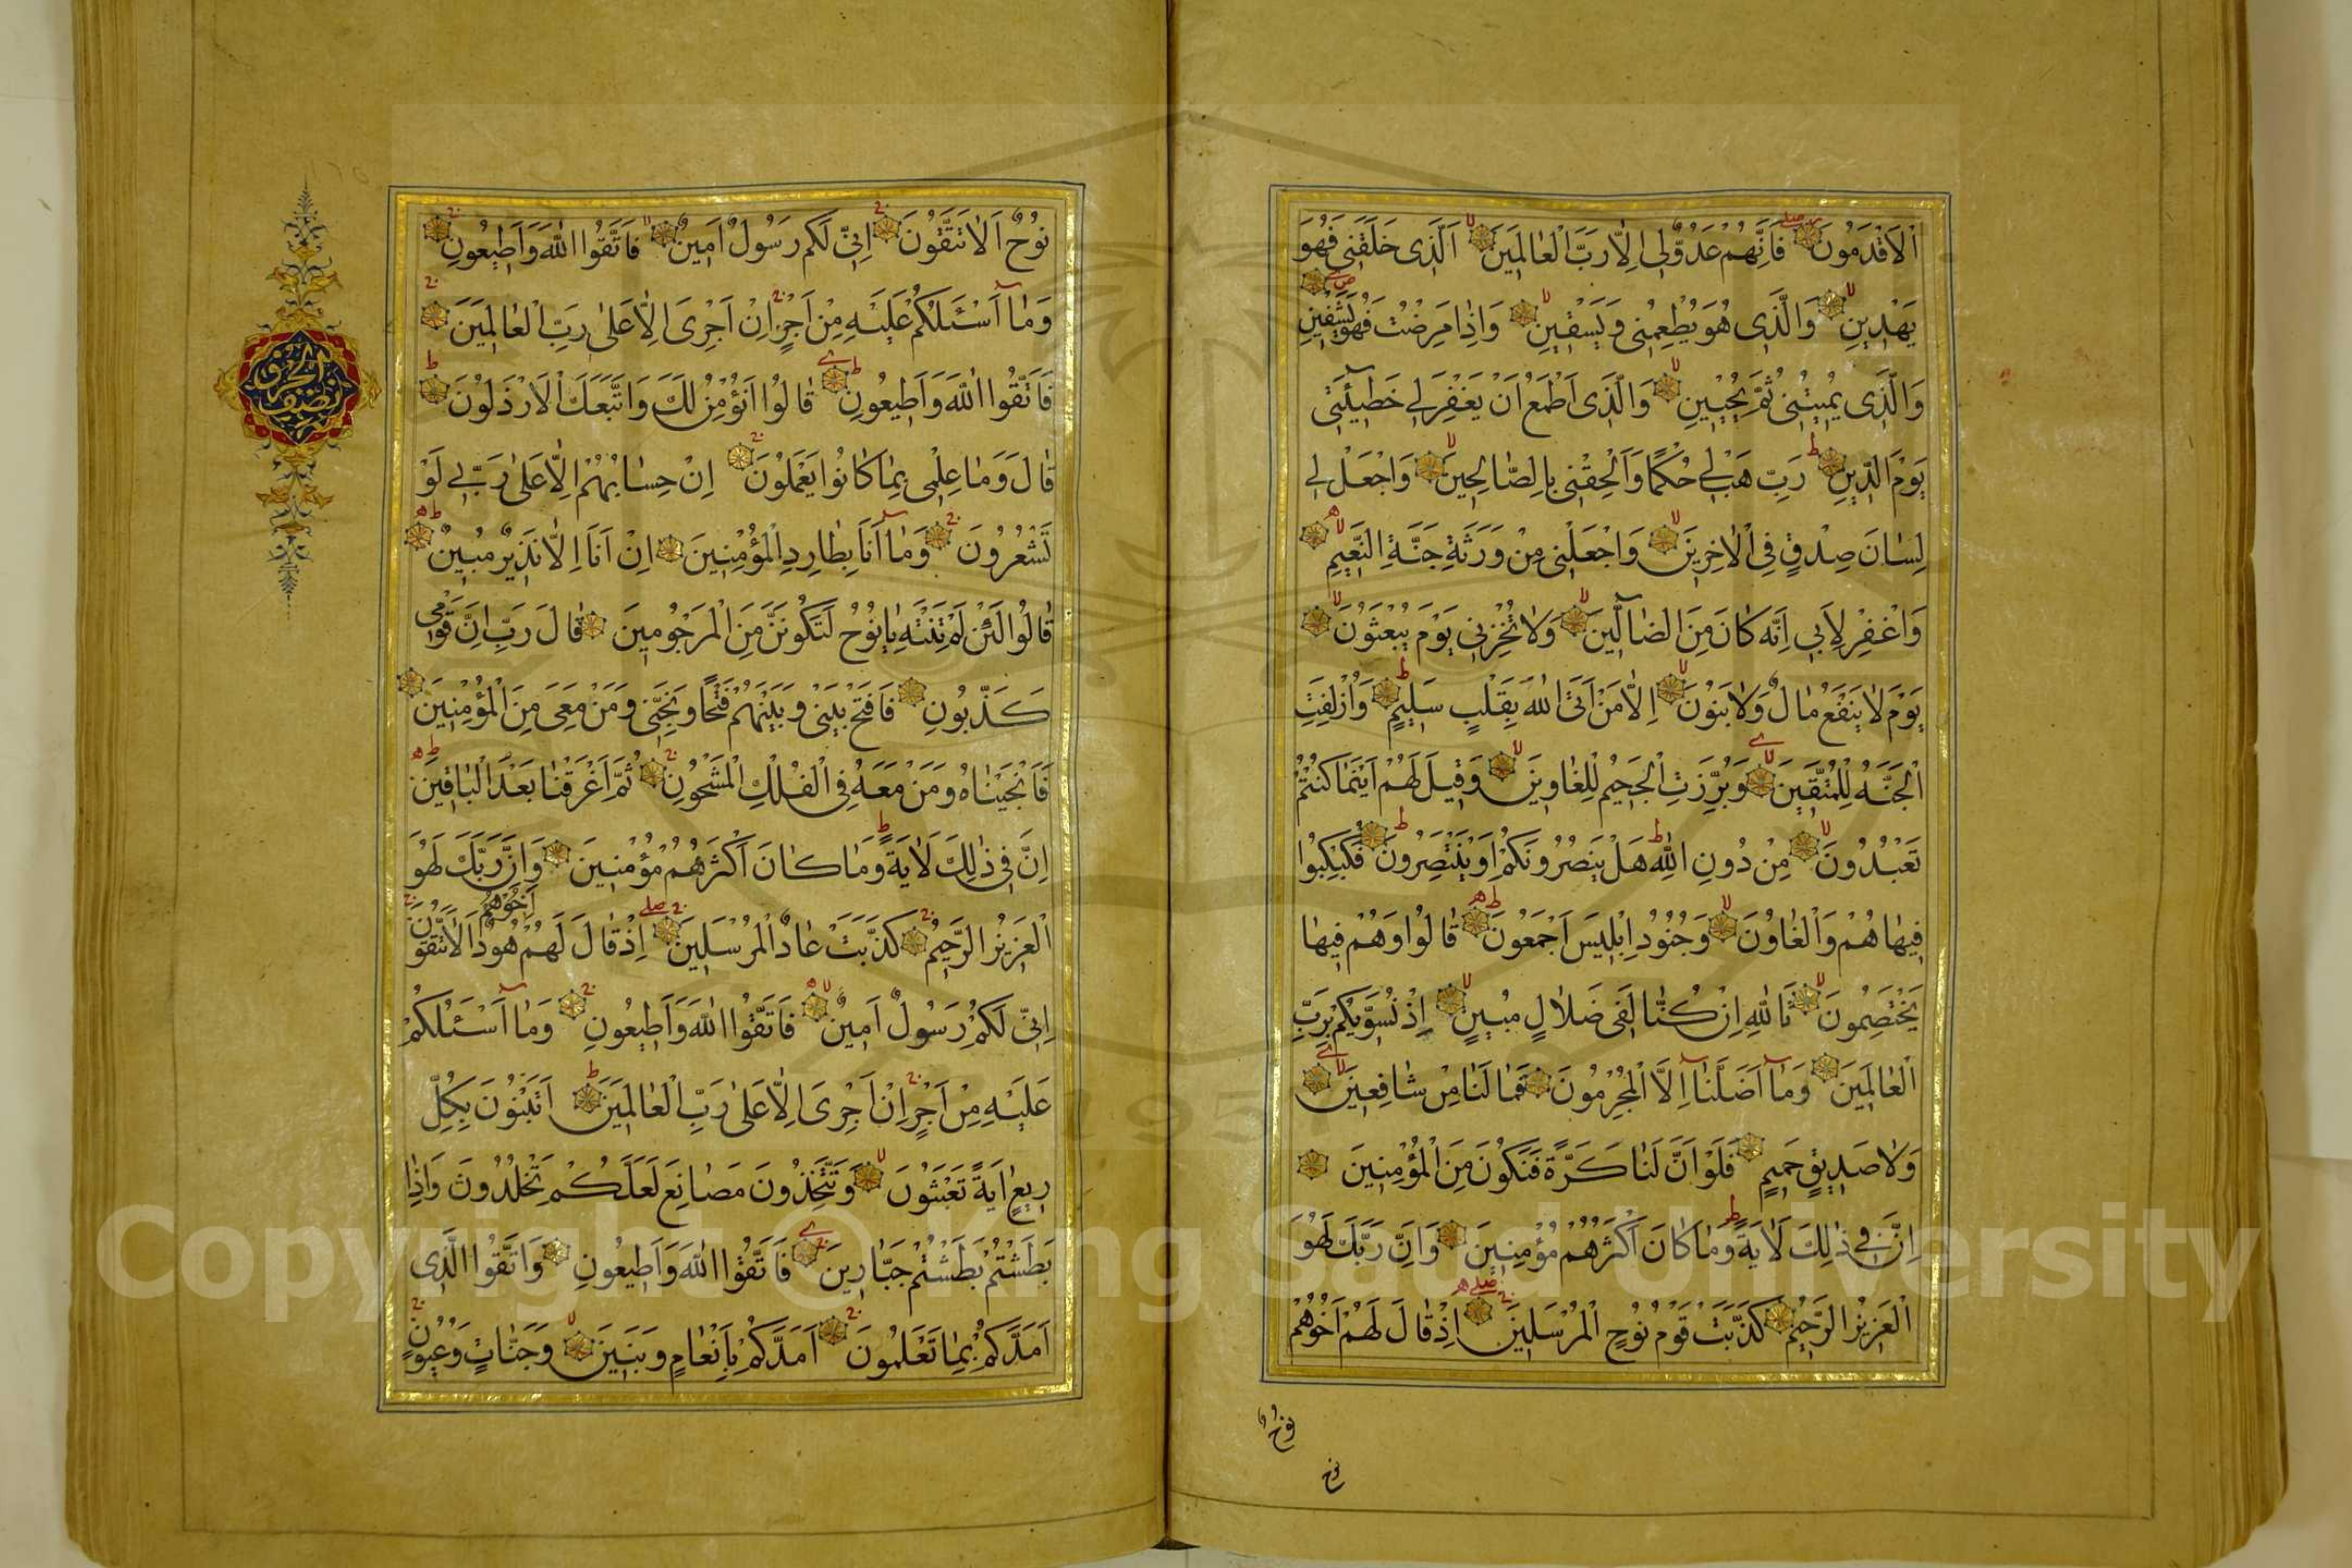 اَلْاَقْدَمُونَ فَاِنَّهُمْ عَدُوٌّ لٖى اِلَّا رَبَّ الْعَالَمٖينَ اَلَّذٖى خَلَقَنٖى فَهُوَ
يَهْدٖينِ وَالَّذٖى هُوَ يُطْعِمُنٖى وَيَسْقٖينِ وَاِذَا مَرِضْتُ فَهُوَ يَشْفٖينِ
وَالَّذٖى يُمٖيتُنٖى ثُمَّ يُحْيٖينِ وَالَّذٖى اَطْمَعُ اَنْ يَغْفِرَ لٖى خَطٖيئَتٖى
يَوْمَ الدّٖينِ رَبِّ هَبْ لٖى حُكْمًا وَاَلْحِقْنٖى بِالصَّالِحٖينَ وَاجْعَلْ لٖى
لِسَانَ صِدْقٍ فِى الْاٰخِرٖينَ وَاجْعَلْنٖى مِنْ وَرَثَةِ جَنَّةِ النَّعٖيمِ
وَاغْفِرْ لِاَبٖى اِنَّهُ كَانَ مِنَ الضَّالّٖينَ وَلَا تُخْزِنٖى يَوْمَ يُبْعَثُونَ
يَوْمَ لَا يَنْفَعُ مَالٌ وَلَا بَنُونَ اِلَّا مَنْ اَتَى اللّٰهَ بِقَلْبٍ سَلٖيمٍ وَاُزْلِفَتِ
الْجَنَّةُ لِلْمُتَّقٖينَ وَبُرِّزَتِ الْجَحٖيمُ لِلْغَاوٖينَ وَقٖيلَ لَهُمْ اَيْنَمَا كُنْتُمْ
تَعْبُدُونَ مِنْ دُونِ اللّٰهِ هَلْ يَنْصُرُونَكُمْ اَوْ يَنْتَصِرُونَ فَكُبْكِبُوا
فٖيهَا هُمْ وَالْغَاوُنَ وَجُنُودُ اِبْلٖيسَ اَجْمَعُونَ قَالُوا وَهُمْ فٖيهَا
يَخْتَصِمُونَ تَاللّٰهِ اِنْ كُنَّا لَفٖى ضَلَالٍ مُبٖينٍ اِذْ نُسَوّٖيكُمْ بِرَبِّ
الْعَالَمٖينَ وَمَا اَضَلَّنَا اِلَّا الْمُجْرِمُونَ فَمَا لَنَا مِنْ شَافِعٖينَ
وَلَا صَدٖيقٍ حَمٖيمٍ فَلَوْ اَنَّ لَنَا كَرَّةً فَنَكُونَ مِنَ الْمُؤْمِنٖينَ
اِنَّ فٖى ذٰلِكَ لَاٰيَةً وَمَا كَانَ اَكْثَرُهُمْ مُؤْمِنٖينَ وَاِنَّ رَبَّكَ لَهُوَ
الْعَزٖيزُ الرَّحٖيمُ كَذَّبَتْ قَوْمُ نُوحٍ الْمُرْسَلٖينَ اِذْ قَالَ لَهُمْ اَخُوهُمْ
نُوحٌ
نوح
نُوحٌ اَلَا تَتَّقُونَ اِنّٖى لَكُمْ رَسُولٌ اَمٖينٌ فَاتَّقُوا اللّٰهَ وَاَطٖيعُونِ
وَمَا اَسْئَلُكُمْ عَلَيْهِ مِنْ اَجْرٍ اِنْ اَجْرِىَ اِلَّا عَلٰى رَبِّ الْعَالَمٖينَ
فَاتَّقُوا اللّٰهَ وَاَطٖيعُونِ قَالُوا اَنُؤْمِنُ لَكَ وَاتَّبَعَكَ الْاَرْذَلُونَ
قَالَ وَمَا عِلْمٖى بِمَا كَانُوا يَعْمَلُونَ اِنْ حِسَابُهُمْ اِلَّا عَلٰى رَبّٖى لَوْ
تَشْعُرُونَ وَمَا اَنَا بِطَارِدِ الْمُؤْمِنٖينَ اِنْ اَنَا اِلَّا نَذٖيرٌ مُبٖينٌ
قَالُوا لَئِنْ لَمْ تَنْتَهِ يَا نُوحُ لَتَكُونَنَّ مِنَ الْمَرْجُومٖينَ قَالَ رَبِّ اِنَّ قَوْمٖى
كَذَّبُونِ فَافْتَحْ بَيْنٖى وَبَيْنَهُمْ فَتْحًا وَنَجِّنٖى وَمَنْ مَعِىَ مِنَ الْمُؤْمِنٖينَ
فَاَنْجَيْنَاهُ وَمَنْ مَعَهُ فِى الْفُلْكِ الْمَشْحُونِ ثُمَّ اَغْرَقْنَا بَعْدُ الْبَاقٖينَ
اِنَّ فٖى ذٰلِكَ لَاٰيَةً وَمَا كَانَ اَكْثَرُهُمْ مُؤْمِنٖينَ وَاِنَّ رَبَّكَ لَهُوَ
الْعَزٖيزُ الرَّحٖيمُ كَذَّبَتْ عَادٌ الْمُرْسَلٖينَ اِذْ قَالَ لَهُمْ اَخُوهُمْ هُودٌ اَلَا تَتَّقُونَ
اِنّٖى لَكُمْ رَسُولٌ اَمٖينٌ فَاتَّقُوا اللّٰهَ وَاَطٖيعُونِ وَمَا اَسْئَلُكُمْ
عَلَيْهِ مِنْ اَجْرٍ اِنْ اَجْرِىَ اِلَّا عَلٰى رَبِّ الْعَالَمٖينَ اَتَبْنُونَ بِكُلِّ
رٖيعٍ اٰيَةً تَعْبَثُونَ وَتَتَّخِذُونَ مَصَانِعَ لَعَلَّكُمْ تَخْلُدُونَ وَاِذَا
بَطَشْتُمْ بَطَشْتُمْ جَبَّارٖينَ فَاتَّقُوا اللّٰهَ وَاَطٖيعُونِ وَاتَّقُوا الَّذٖى
اَمَدَّكُمْ بِمَا تَعْلَمُونَ اَمَدَّكُمْ بِاَنْعَامٍ وَبَنٖينَ وَجَنَّاتٍ وَعُيُونٍ
Copyright © King Saud University